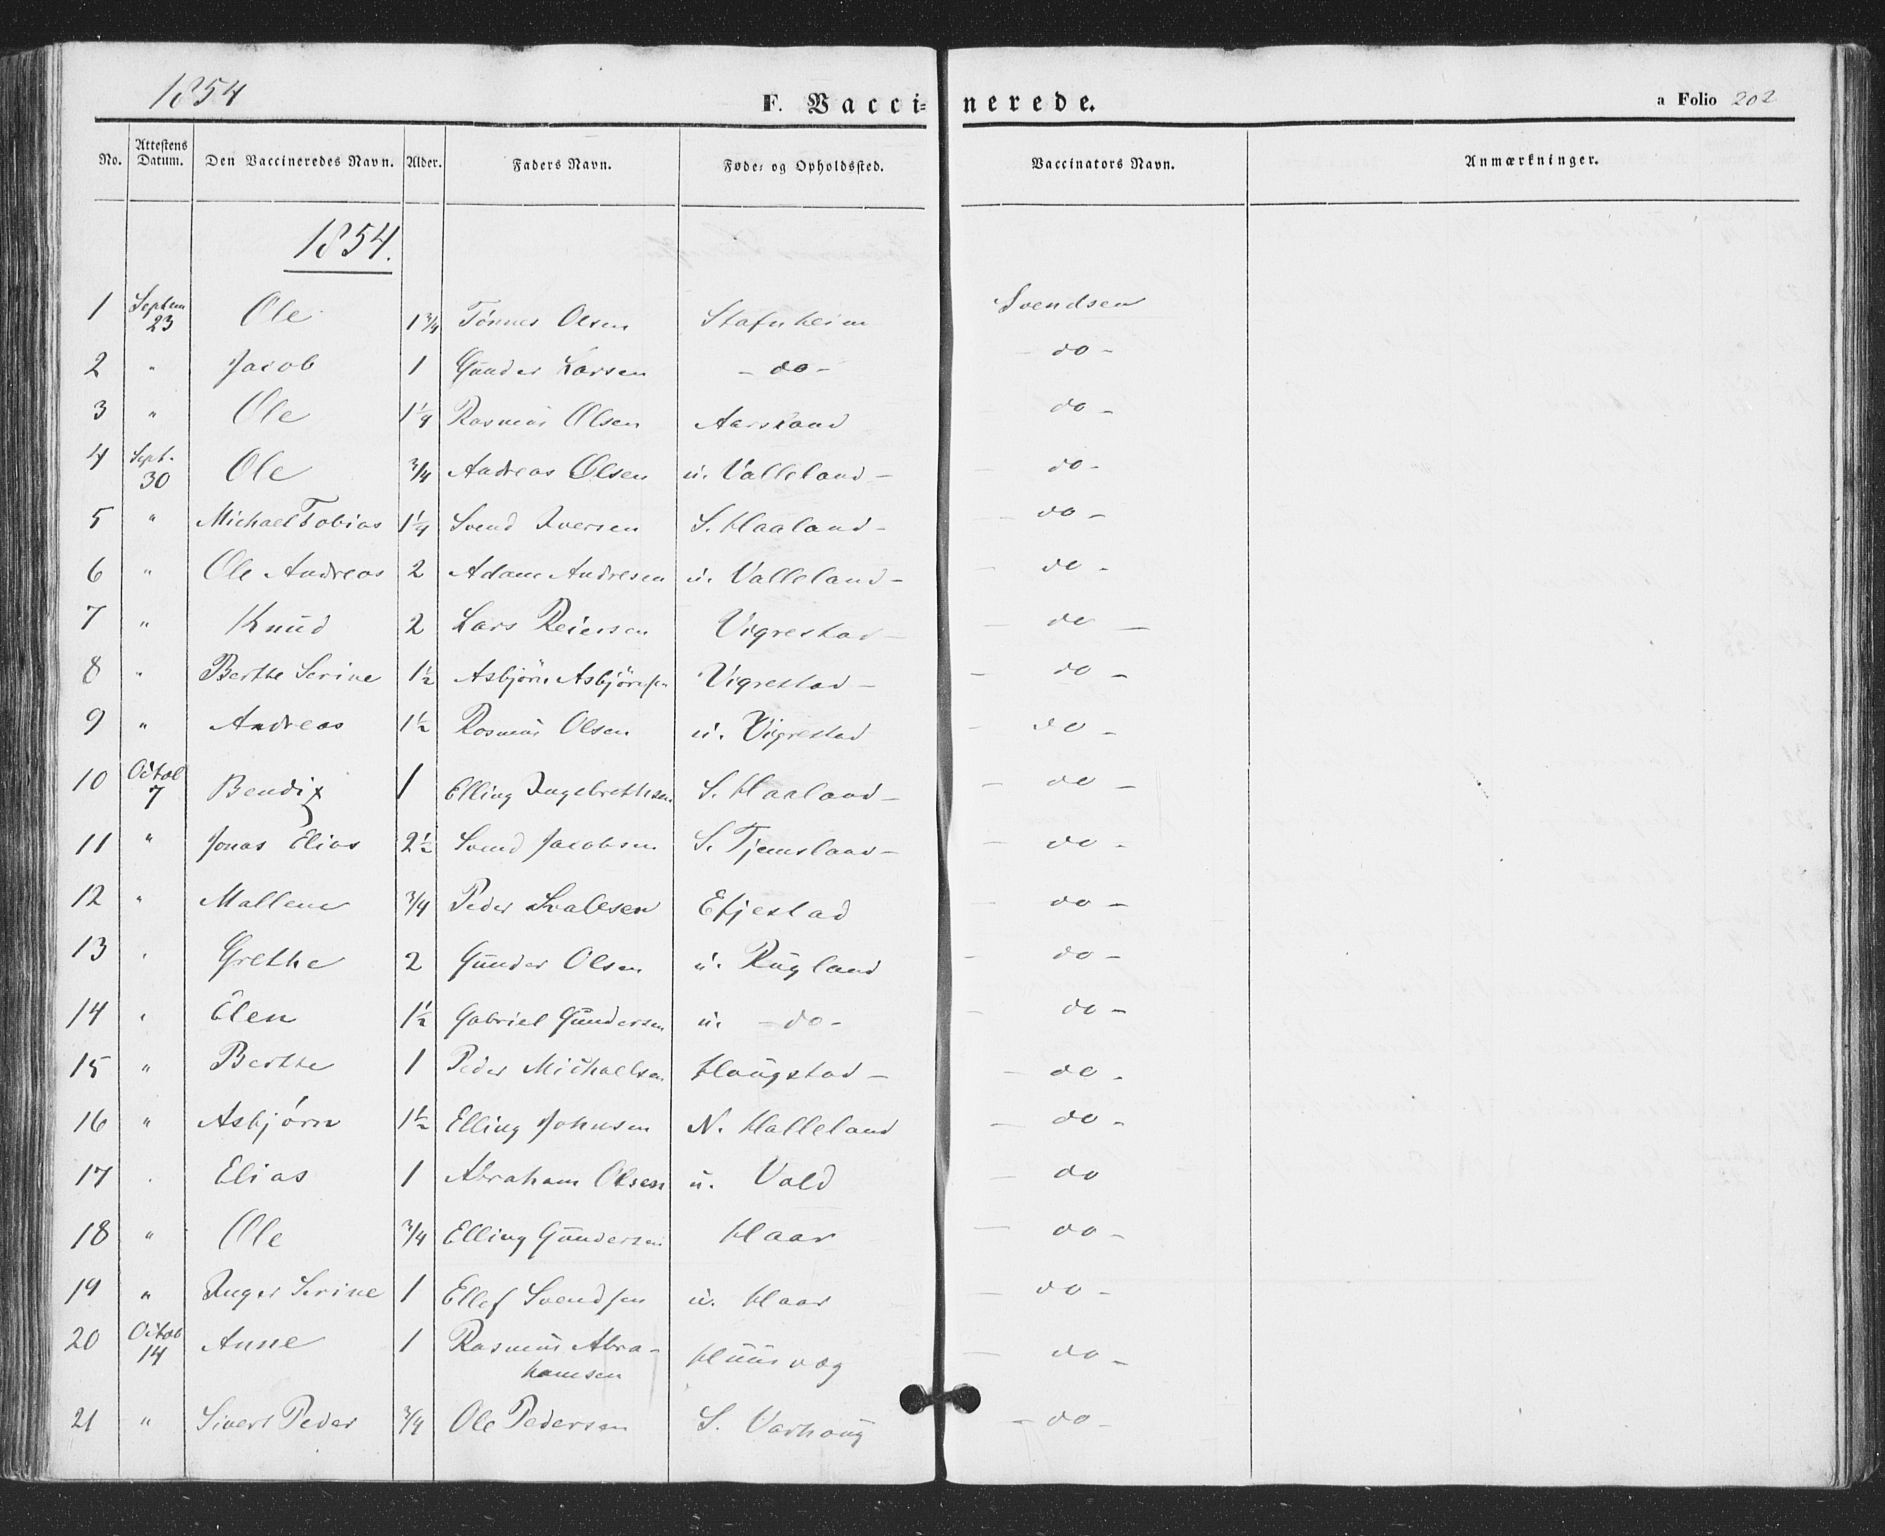 1854 F. Vacci= nerede. a Folio 202
No. Attestens Datum. Den Vaccineredes Navn. Alder. Faders Navn. Føde= og Opholdssted. Vaccinators Navn. Anmærkninger.
1854.
1 Septem 23 Ole 1 3/4 Tönnes Olsen Stafnheim Svendsen
2 " Jacob 1 Gunder Larsen - do - - do -
3 " Ole 1 1/4 Rasmus Olsen Aarsland do -
4 Sept. 30 Ole 3/4 Andreas Olsen u. Valleland - - do -
5 " Michael Tobias 1 1/4 Svend Iversen S. Haaland - - do -
6 " Ole Andreas 2 Adam Andresen u. Valleland - - do -
7 " Knud 2 Lars Reiersen Vigrestad - - do -
8 " Berthe Serine 1 1/2 Asbjörn Asbjörnsen Vigrestad - - do -
9 " Andreas 1 1/2 Rasmus Olsen u. Vigrestad - do -
10 Octob 7 Bendix 1 Elling Ingebrethsen S. Haaland - - do -
11 " Jonas Elias 2 1/2 Svend Jacobsen S. Tjemsland - - do -
12 " Mallene 3/4 Peder Svalesen Efjestad - do -
13 " Grethe 2 Gunder Olsen u. Rugland - do -
14 " Elen 1 1/2 Gabriel Gundersen u. - do - - do -
15 " Berthe 1 Peder Michaelsen Haugstad - - do -
16 " Asbjørn 1 1/2 Elling Johnsen N. Halleland - do -
17 " Elias 1 Abraham Olsen u. Vold - do
18 " Ole 3/4 Elling Gundersen Haar - do -
19 " Inger Serine 1 Ellef Svendsen u. Haar - do -
20 Octob 14 Anne 1 Rasmus Abra-
hamsen Huusvæg - do -
21 " Sivert Peder 3/4 Ole Pedersen S. Varhoug - do -